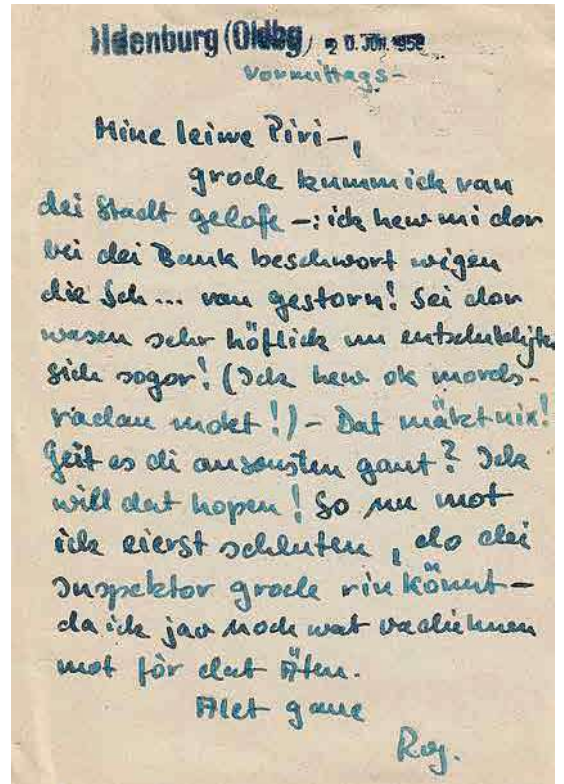 ldenburg (Oldbg) 20. JUN. 1952
vormittags-
Mine leiwe Piri-,
grode kumm ick van
dei Stadt gelofe -: ick hew mi dor
bei dei Bank beschwort wigen
die Sch... van gestorn! Sei dor
wasen sehr höflick un entschuldigten
sich sogor! (Ick hew ok mords-
radau mokt!) - Dat mäkt nix!
Geit es di ansonsten gaut? Ick
will dat hopen! So nu mot
ick eierst schluten, do dei
Inspektor grode rin kömmt -
da ick jao noch wat
mot för dat Äten.
Alet gaue